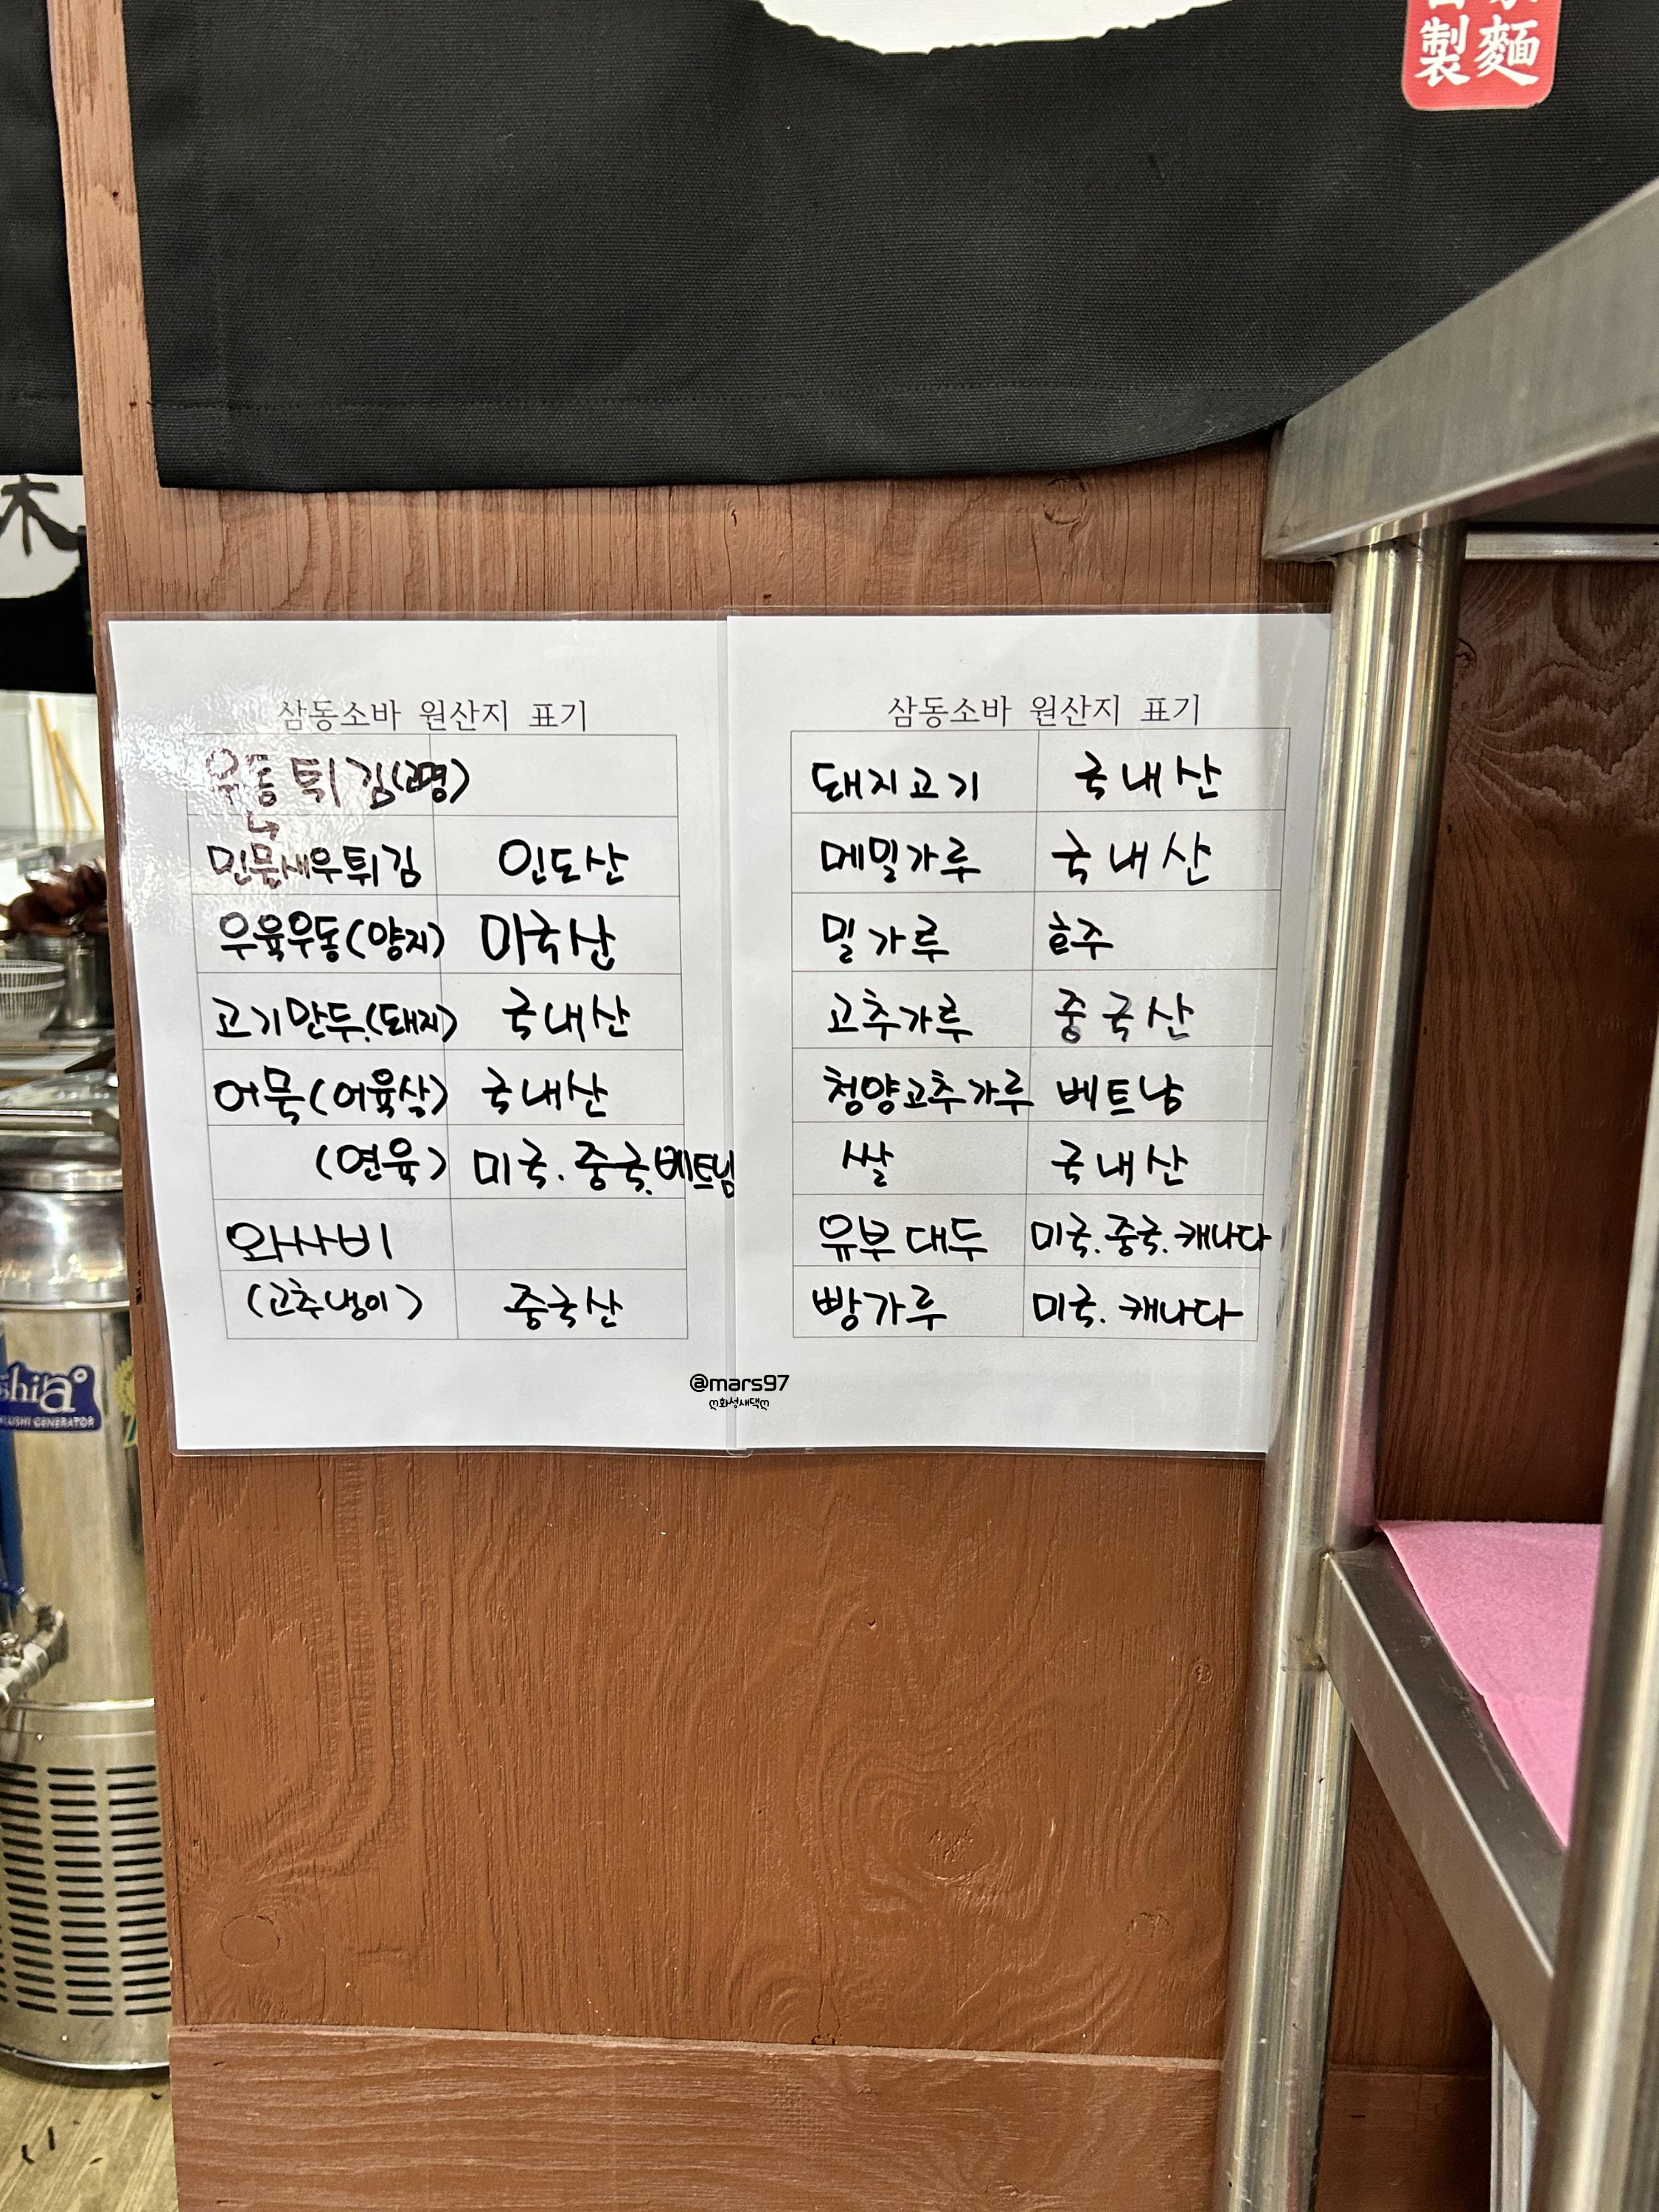 製 麵
木
삼동소바 원산지 표기
우동 튀김(고명)
↳
민물새우튀김 인도산
우육우동(양지) 미국산
고기만두(돼지) 국내산
어묵(어육살) 국내산
(연육) 미국.중국.베트남
와사비
(고추냉이) 중국산
삼동소바 원산지 표기
돼지고기 국내산
메밀가루 국내산
밀가루 호주
고추가루 중국산
청양고추가루 베트남
쌀 국내산
유부 대두 미국.중국.캐나다
빵가루 미국.캐나다
@mars97
ღ화성새댁ღ
GENERATOR